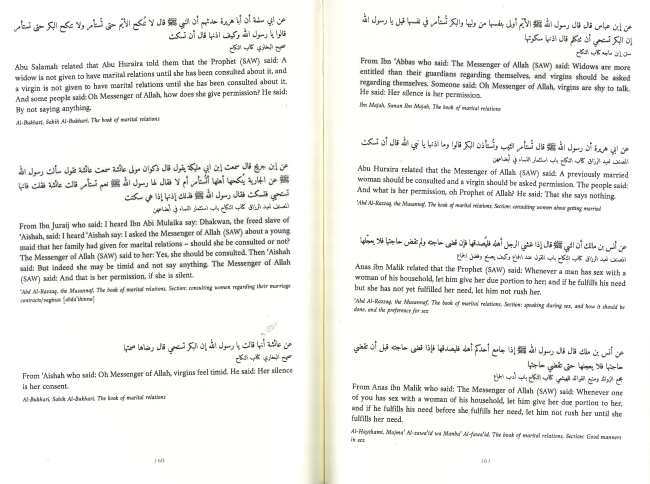 عن أبي سلمة أن أبا هريرة حدثهم أن النبي ﷺ قال لا تنكح الأيّم حتى تُستأمر ولا تنكح البكر حتى تستأمر
قالوا يا رسول الله وكيف اذنها قال أن تسكت
صحيح البخاري كتاب النكاح
Abu Salamah related that Abu Huraira told them that the Prophet (SAW) said: A
widow is not given to have marital relations until she has been consulted about it, and
a virgin is not given to have marital relations until she has been consulted about it.
And some people said: Oh Messenger of Allah, how does she give permission? He said:
By not saying anything.
Al-Bukhari, Sahih Al-Bukhari, The book of marital relations
عن إبن جريج قال سمعت إبن أبي مليكة يقول قال ذكوان مولى عائشة سمعت عائشة تقول سألت رسول الله
ﷺ عن الجارية يُنكحها أهلها أتُستأمر أم لا فقال لها رسول الله ﷺ نعم تستأمر قالت عائشة فقلت فانها
تستحيي فتسكت فقال رسول الله ﷺ فذلك إذنها إذا هي سكتت
المصنف لعبد الرزاق كتاب النكاح باب استئمار النساء في أبضاعهن
From Ibn Juraij who said: I heard Ibn Abi Mulaika say: Dhakwan, the freed slave of
'Aishah, said: I heard 'Aishah say: I asked the Messenger of Allah (SAW) about a young
maid that her family had given for marital relations – should she be consulted or not?
The Messenger of Allah (SAW) said to her: Yes, she should be consulted. Then 'Aishah
said: But indeed she may be timid and not say anything. The Messenger of Allah
(SAW) said: And that is her permission, if she is silent.
'Abd Al-Razzaq, the Musannaf, The book of marital relations. Section: consulting women regarding their marriage
contracts/vaginas [abda'ihinna]
عن عائشة أنها قالت يا رسول الله إن البكر تستحيي قال رضاها صمتها
صحيح البخاري كتاب النكاح
From 'Aishah who said: Oh Messenger of Allah, virgins feel timid. He said: Her silence
is her consent.
Al-Bukhari, Sahih Al-Bukhari, The book of marital relations
160
عن إبن عباس قال قال رسول الله ﷺ الأيّم أولى بنفسها من وليها والبكر تُستأمر في نفسها قيل يا رسول الله
إن البكر تستحيي أن تتكلم قال اذنها سكوتها
سنن إبن ماجه كتاب النكاح
From Ibn 'Abbas who said: The Messenger of Allah (SAW) said: Widows are more
entitled than their guardians regarding themselves, and virgins should be asked
regarding themselves. Someone said: Oh Messenger of Allah, virgins are shy to talk.
He said: Her silence is her permission.
Ibn Majah, Sunan Ibn Majah, The book of marital relations
عن أبي هريرة أن رسول الله ﷺ قال تُستأمر الثيب وتُستأذن البكر قالوا وما اذنها يا نبي الله قال أن تسكت
المصنف لعبد الرزاق كتاب النكاح باب استئمار النساء في أبضاعهن
Abu Huraira related that the Messenger of Allah (SAW) said: A previously married
woman should be consulted and a virgin should be asked permission. The people said:
And what is her permission, oh Prophet of Allah? He said: That she says nothing.
'Abd Al-Razzaq, the Musannaf, The book of marital relations, Section: consulting women about getting married
عن أنس بن مالك أن النبي ﷺ قال إذا غشي الرجل أهله فليُصدقها فإن قضى حاجته ولم تقض حاجتها فلا يعجّلها
المصنف لعبد الرزاق كتاب النكاح باب القول عند الجماع وكيف يصنع وفضل الجماع
Anas ibn Malik related that the Prophet (SAW) said: Whenever a man has sex with a
woman of his household, let him give her due portion to her; and if he fulfills his need
but she has not yet fulfilled her need, let him not rush her.
'Abd Al-Razzaq, the Musannaf, The book of marital relations, Section: speaking during sex, and how it should be
done, and the preference for sex
عن أنس بن ملك قال قال رسول الله ﷺ إذا جامع أحدكم أهله فليصدقها فإذا قضى حاجته قبل أن تقضي
حاجتها فلا يعجلها حتى تقضي حاجتها
مجمع الزوائد ومنبع الفوائد للهيثمي كتاب النكاح باب أدب الجماع
From Anas ibn Malik who said: The Messenger of Allah (SAW) said: Whenever one
of you has sex with a woman of his household, let him give her due portion to her,
and if he fulfills his need before she fulfills her need, let him not rush her until she
fulfills her need.
Al-Haythami, Majma' Al-zawa'id wa Manba' Al-fawa'id, The book of marital relations, Section: Good manners
in sex
161